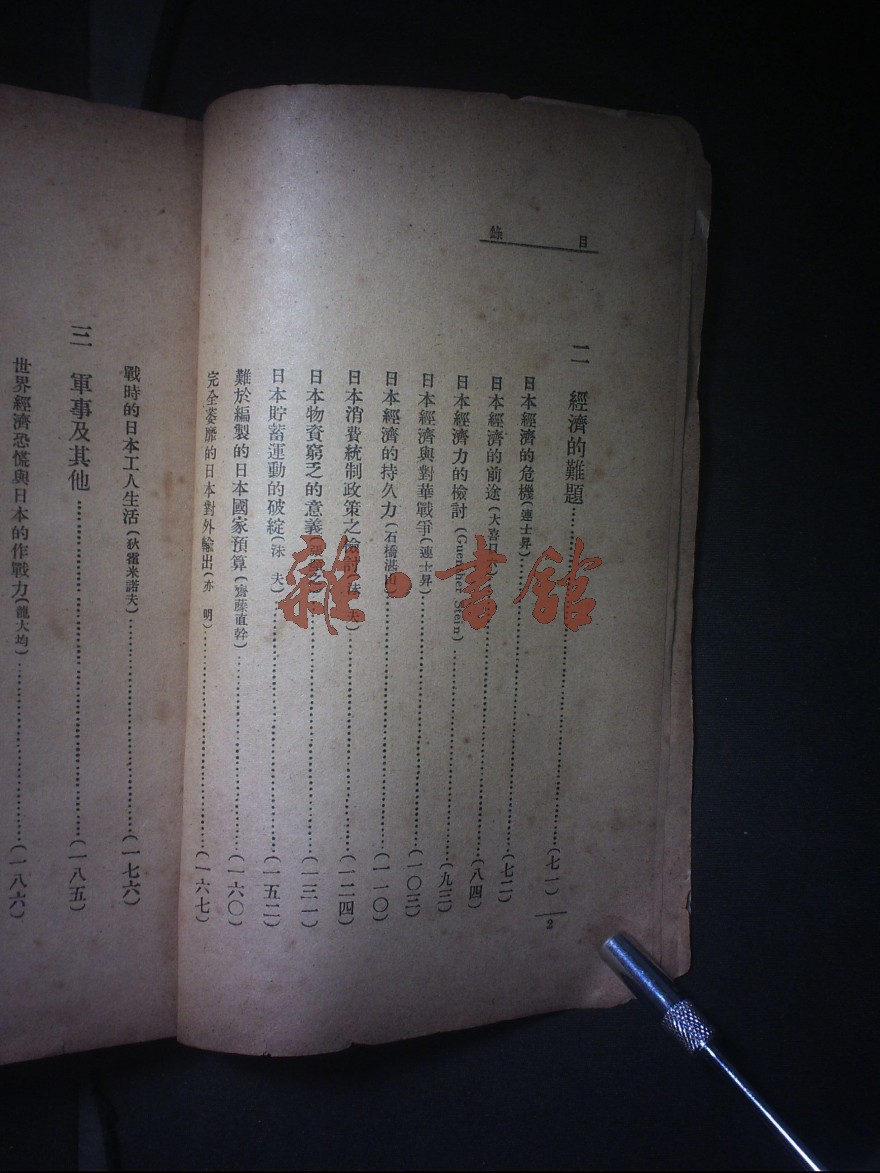 目錄
二 經濟的難題……(七一)
日本經濟的危機(連士昇)……(七二)
日本經濟的前途(大喜……(八四)
日本經濟力的檢討(Guenther Stein)……(九三)
日本經濟與對華戰爭(連士昇)……(一〇三)
日本經濟的持久力(石橋湛山)……(一一〇)
日本消費統制政策之檢討……(一二四)
日本物資窮乏的意義……(一三一)
日本貯蓄運動的破綻(洙 夫)……(一五二)
難於編製的日本國家預算(齋藤直幹)……(一六〇)
完全萎靡的日本對外輸出(亦 明)……(一六七)
2
戰時的日本工人生活(狄霍米諾夫)……(一七六)
三 軍事及其他……(一八五)
世界經濟恐慌與日本的作戰力(龍大均)……(一八六)
雜·書館